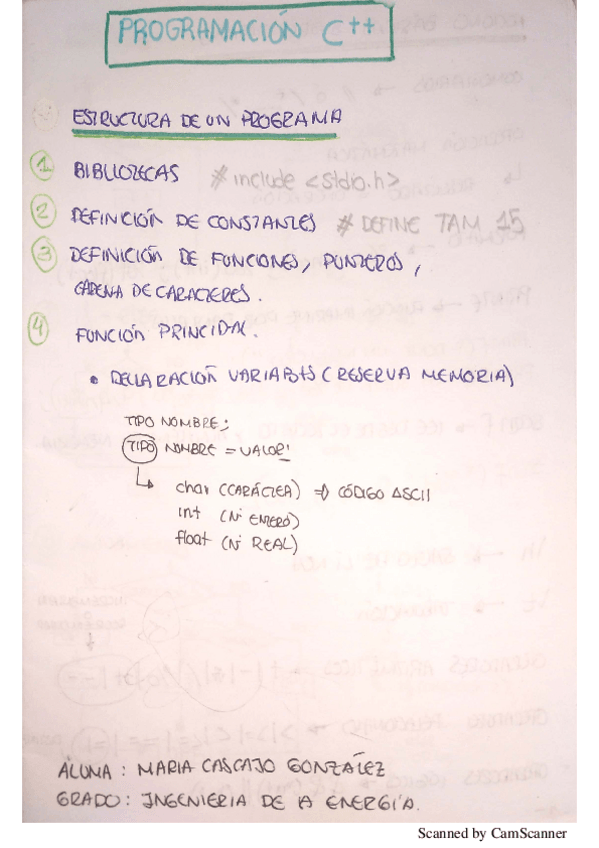 PROGRAMACIÓN C++
ESTRUCTURA DE UN PROGRAMA
1 BIBLIOTECAS # include <stdio.h>
2 DEFINICIÓN DE CONSTANTES # DEFINE TAM 15
3 DEFINICIÓN DE FUNCIONES, PUNTEROS,
CADENA DE CARACTERES.
4 FUNCIÓN PRINCIPAL.
• DECLARACIÓN VARIABLES (RESERVA MEMORIA)
TIPO NOMBRE;
TIPO NOMBRE = VALOR;
↳ char (CARÁCTER) => CÓDIGO ASCII
int (Nº ENTERO)
float (Nº REAL)
ALUNA : MARIA CASCAJO GONZÁLEZ
GRADO : INGENIERIA DE LA ENERGÍA.
Scanned by CamScanner